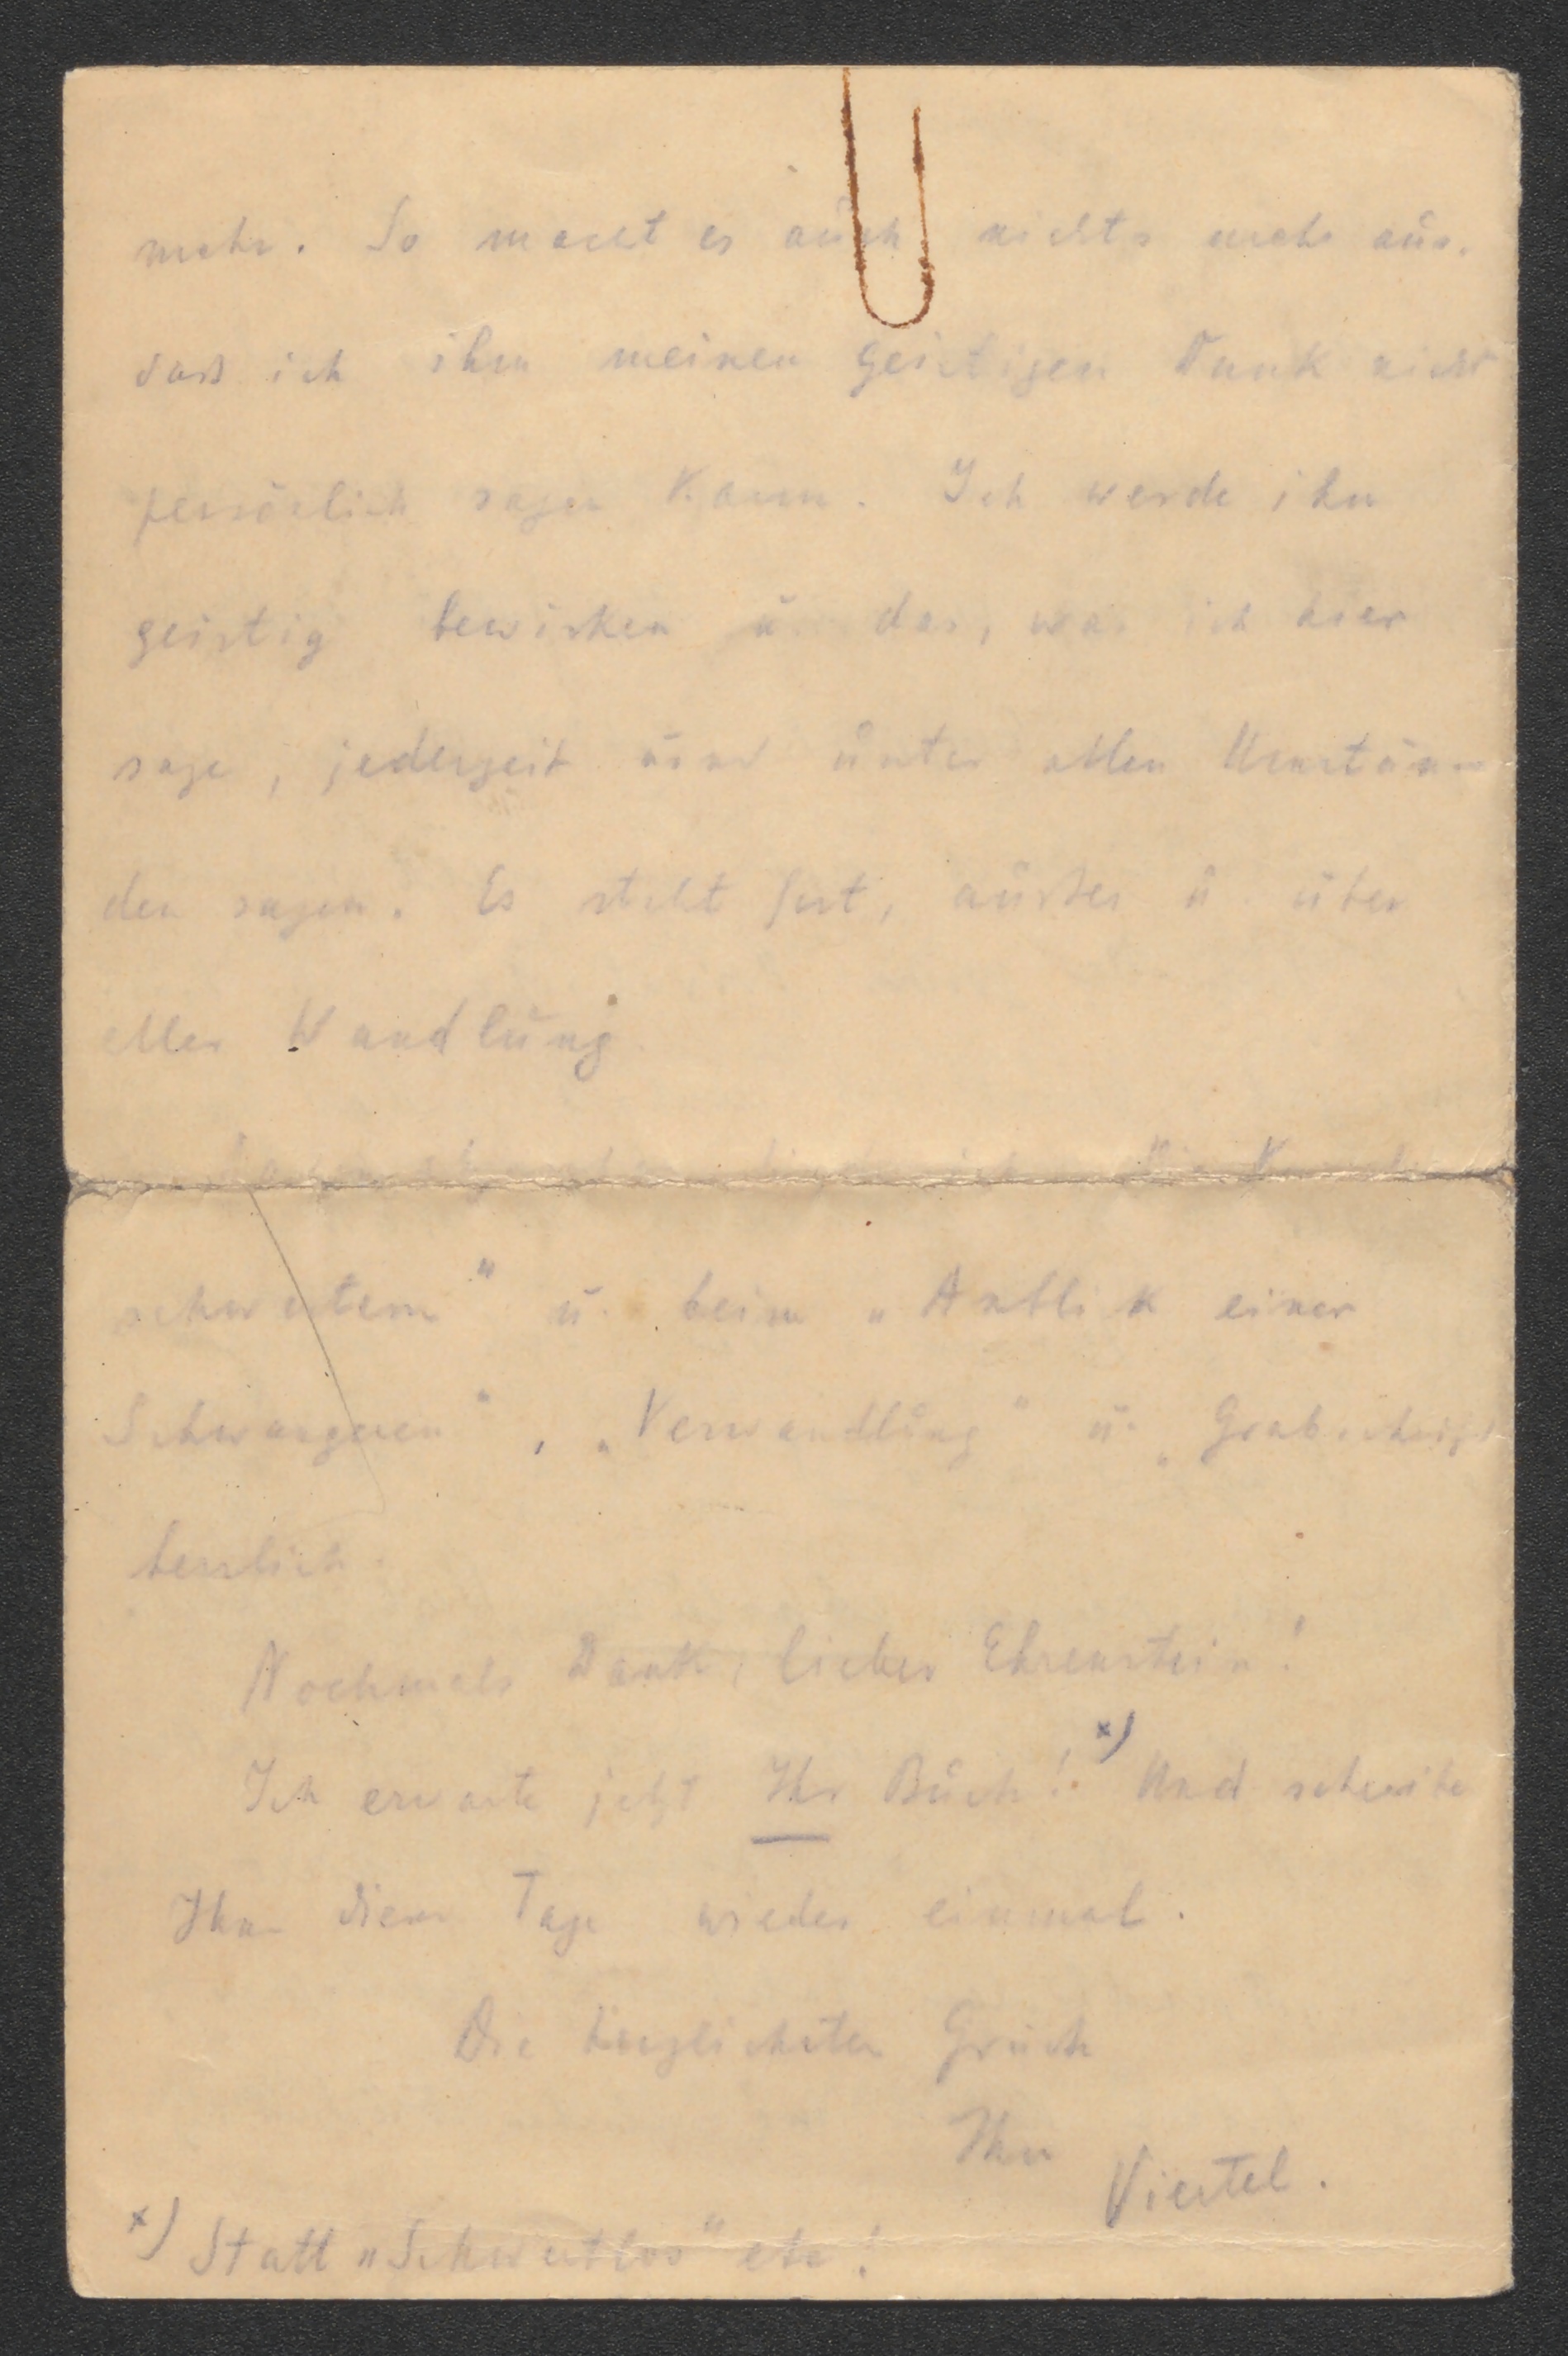 mehr. So macht es auch nichts mehr aus,
dass ich ihm meinen geistigen Dank nicht
persönlich sagen kann. Ich werde ihn
geistig bewirken u. das, was ich hier
sage, jederzeit und unter allen Umstän-
den sagen. Es steht fest, außer u. über
aller Wandlung
Die
schwestern" u. beim „Anblick einer
Schwangeren", „Verwandlung" u. „Grabschrift
herrlich.
Nochmals Dank, lieber Ehrenstein!
Ich erwarte jetzt Ihr Buch! x) Und schreibe
Ihnen dieser Tage wieder einmal.
Die herzlichsten Grüße
Ihr Viertel.
x) Statt „Schwertlos" etc!